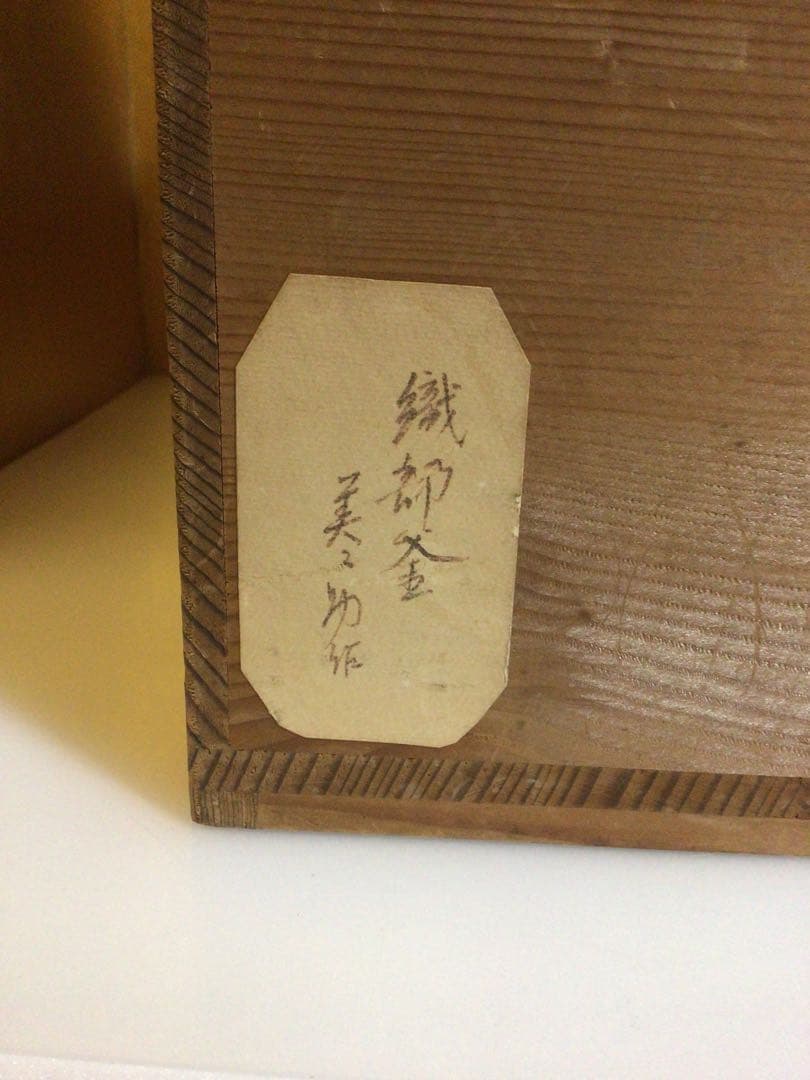 織部釜
美之助作